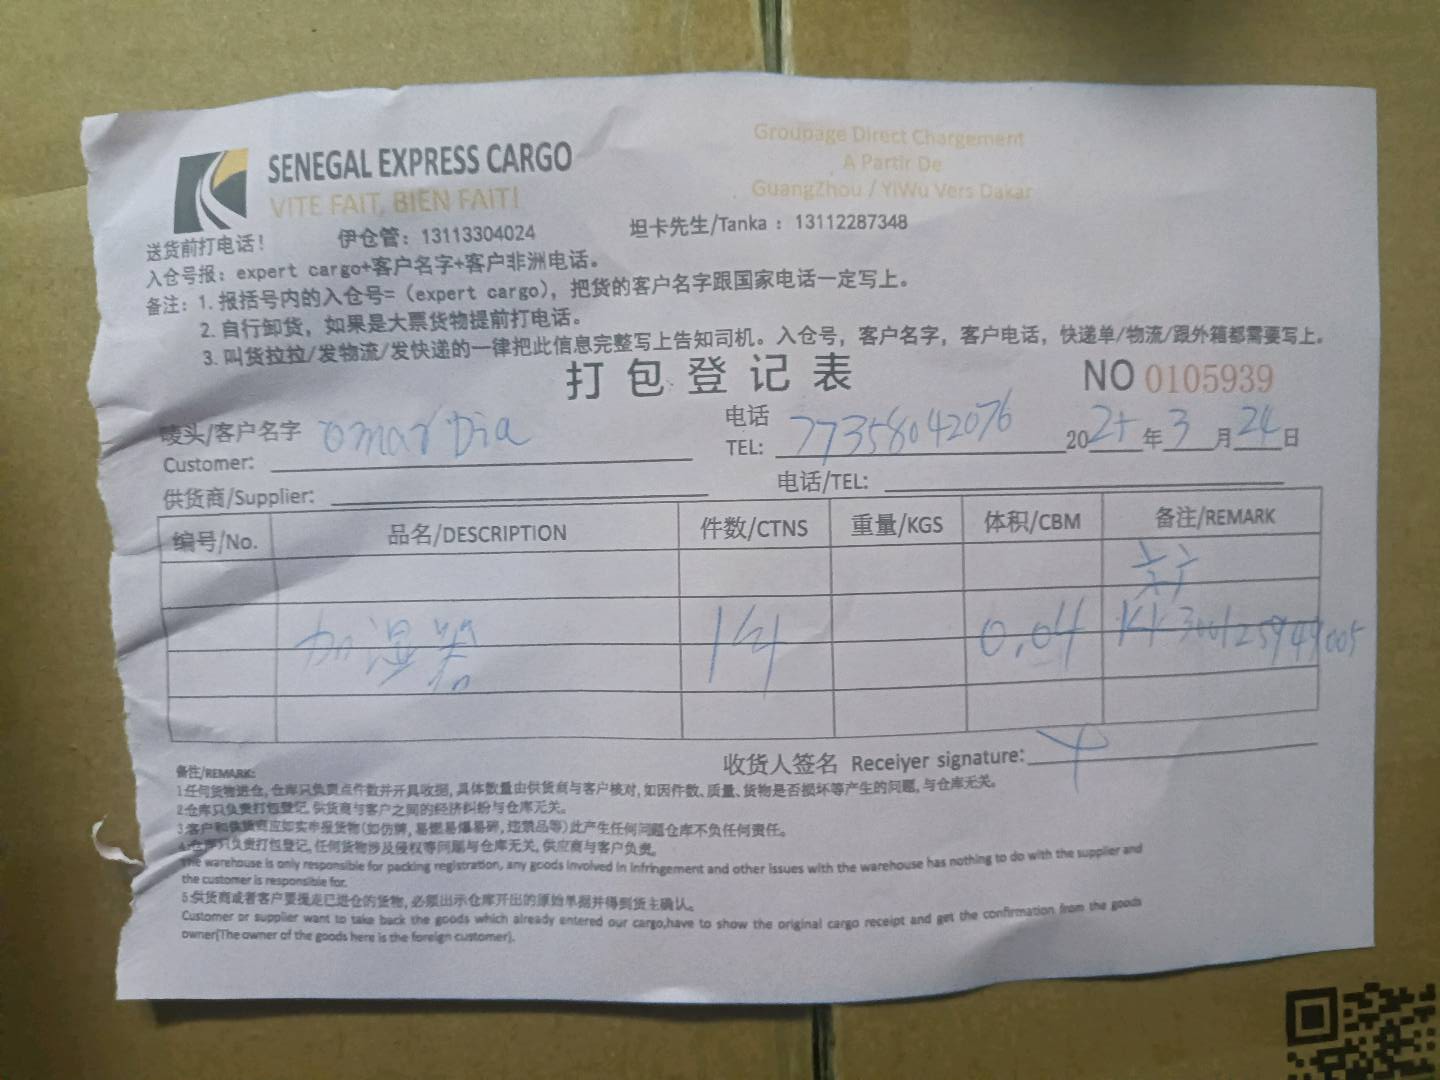 SENEGAL EXPRESS CARGO
VITE FAIT, BIEN FAIT!
Groupage Direct Chargement
A Partir De
GuangZhou / YiWu Vers Dakar
送货前打电话！ 伊仓管：13113304024 坦卡先生/Tanka：13112287348
入仓号报：expert cargo+客户名字+客户非洲电话。
备注：1. 报括号内的入仓号=（expert cargo），把货的客户名字跟国家电话一定写上。
2. 自行卸货，如果是大票货物提前打电话。
3. 叫货拉拉/发物流/发快递的一律把此信息完整写上告知司机。入仓号，客户名字，客户电话，快递单/物流/跟外箱都需要写上。
打包登记表
NO 0105939
唛头/客户名字 Customer: Omar Dia 电话 TEL: 77358042076 2025年3月24日
供货商/Supplier: 电话/TEL:
编号/No. 品名/DESCRIPTION 件数/CTNS 重量/KGS 体积/CBM 备注/REMARK
加湿器 1件 0.04 300125949005
收货人签名 Receiyer signature:
备注/REMARK:
1.任何货物进仓,仓库只负责点件数并开具收据,具体数量由供货商与客户核对,如因件数、质量、货物是否损坏等产生的问题,与仓库无关。
2.仓库只负责打包登记,供货商与客户之间的经济纠纷与仓库无关。
3.客户和供货商应如实申报货物(如仿牌,易燃易爆易碎,违禁品等)此产生任何问题仓库不负任何责任。
4.仓库只负责打包登记,任何货物涉及侵权等问题与仓库无关,供应商与客户负责。
The warehouse is only responsible for packing registration, any goods involved in infringement and other issues with the warehouse has nothing to do with the supplier and
the customer is responsible for.
5.供货商或者客户要提走已进仓的货物,必须出示仓库开出的原始单据并得到货主确认。
Customer or supplier want to take back the goods which already entered our cargo,have to show the original cargo receipt and get the confirmation from the goods
owner(The owner of the goods here is the foreign customer).